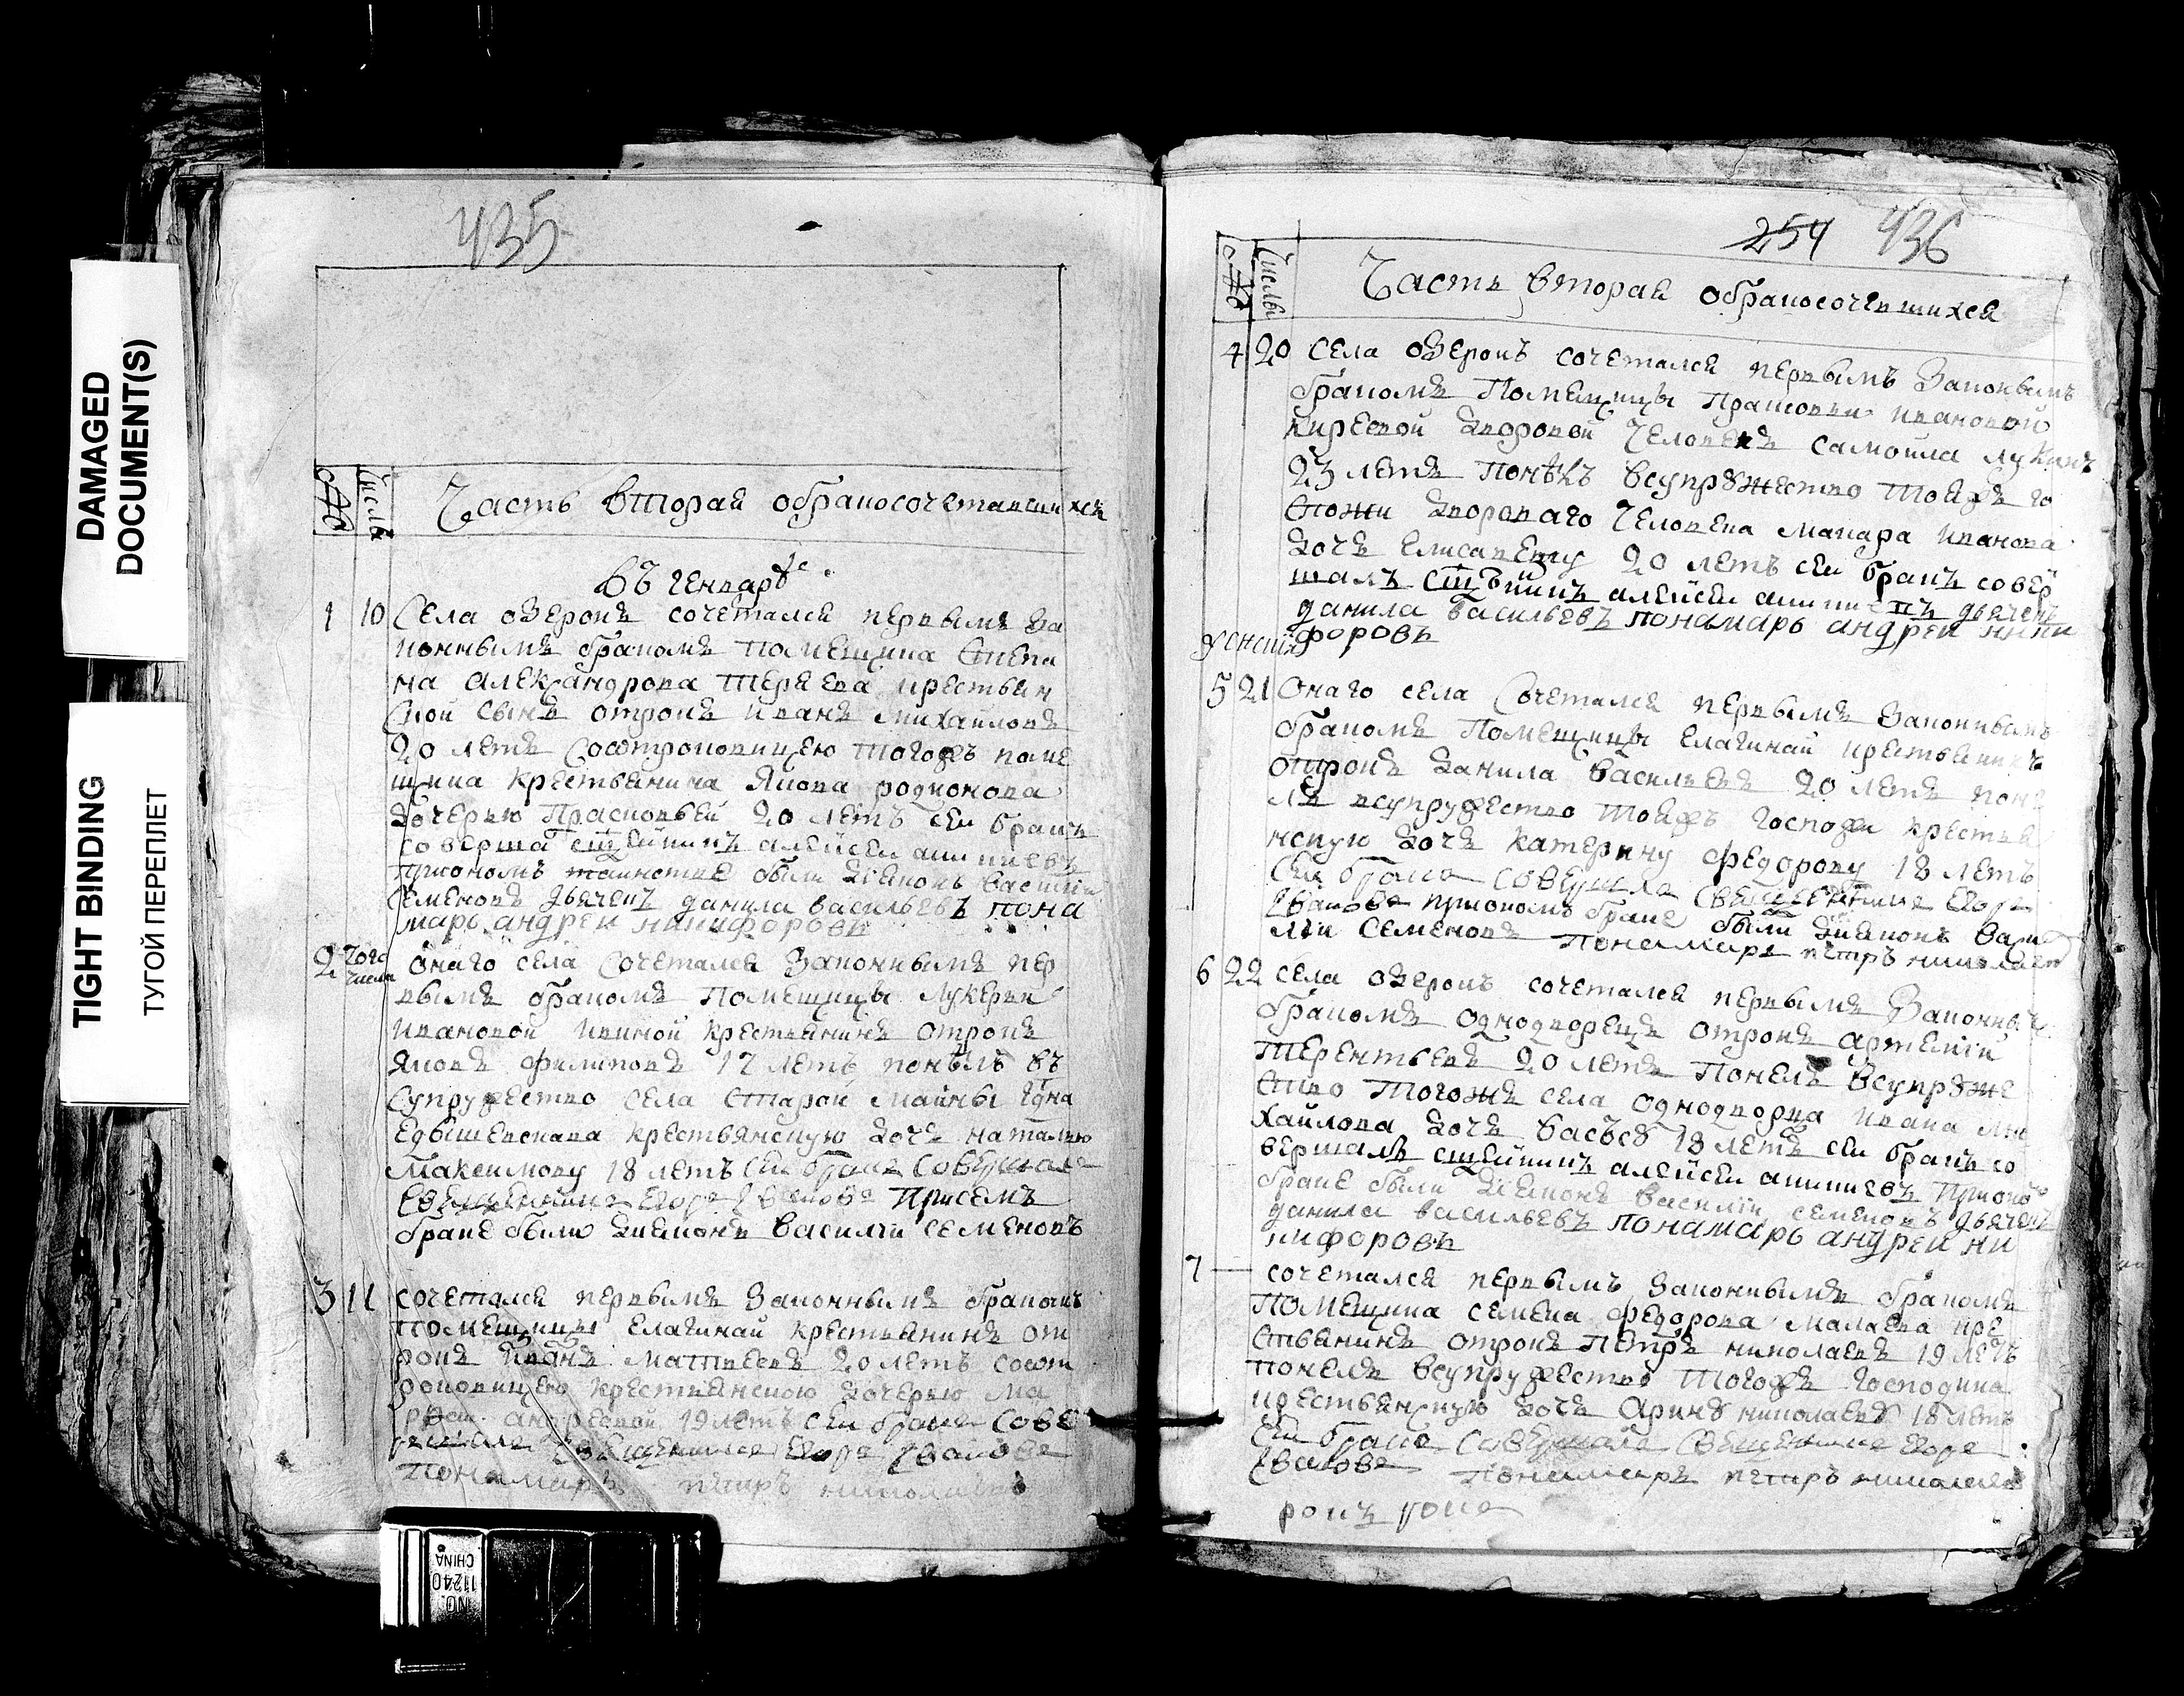 DAMAGED
DOCUMENT(S)
TIGHT BINDING
ТУГОЙ ПЕРЕПЛЕТ
435
№ Числы
Часть вторая обракосочетавшихся
въ генварѣ
1 10 Села озерокъ сочетался первымъ за
коннымъ бракомъ Помещика Степа
на александрова крестьян
ской сынъ отрокъ иванъ михаиловъ
20 летъ Соотроковицею тогожъ поме
щика крестьянина Якова родионова
дочерью Прасковьей 20 летъ сей бракъ
соверша алексей
при ономъ таинстве были диаконъ василий
семеновъ дьячекъ данила васильевъ пона
марь андреи никифоровъ
2 того числа онаго села Сочетался Законнымъ пер
вымъ бракомъ Помещицы Лукерьи
ивановой крестьянинъ отрокъ
Яковъ филиповъ 17 летъ понялъ въ
Супружество села Старой Майны
крестьянскую дочь наталью
Максимову 18 летъ Сей бракъ Совершалъ
Священникъ Егоръ Ивановъ При семъ
браке были диаконъ василий семеновъ
3 11 сочетался первымъ Законнымъ бракомъ
помещицы Елагинай крестьянинъ от
рокъ Иванъ матвеевъ 20 летъ соот
роковицею крестьянскою дочерью ма
андреевой 19 летъ сей бракъ Сове
Священникъ Егоръ Ивановъ
Понамарь петръ николаевъ
254 436
№ Числы
Часть вторая обракосочевшихся
4 20 Села озерокъ сочетался первымъ Законнымъ
бракомъ Помещицы Прасковьи ивановой
киреевой дворовой человекъ самоила лукинъ
23 летъ понялъ всупрȣжество тояжъ го
спожи двороваго человека макара иванова
дочь елисавету 20 летъ сей бракъ совер
шалъ алексей дьячекъ
данила васильевъ понамарь андреи ники
форовъ
5 21 Онаго села Сочетался первымъ Законнымъ
бракомъ Помещицы Елагинай крестьянинъ
отрокъ данила васильевъ 20 летъ поня
лъ всупружество тояжъ госпожи крестья
нскую дочь катерину федорову 18 летъ
Сей бракъ Совершалъ Священникъ Егоръ
Ивановъ приономъ браке были диаконъ васи
лій Семеновъ Понамарь петръ николаевъ
6 22 села озерокъ сочетался первымъ Законны
бракомъ однодворецъ отрокъ артемій
терентьевъ 20 летъ Понелъ всупрȣже
ство тогожъ села однодворца ивана ми
хайлова дочь 18 летъ сей бракъ со
вершалъ алексей при оно
браке были диаконъ василій семеновъ дьячекъ
данила васильевъ понамарь андреи ни
кифоровъ
7 сочетался первымъ Законнымъ бракомъ
Помещика семена федорова кре
стьянинъ отрокъ Петръ николаевъ 19 летъ
понелъ всупружество тогожъ господина
крестьянскую дочь Аринȣ николаевȣ 18 летъ
Сей бракъ Совершалъ Священникъ Егоръ
Ивановъ Понамарь петръ николаевъ
NO. 11240
CHINA